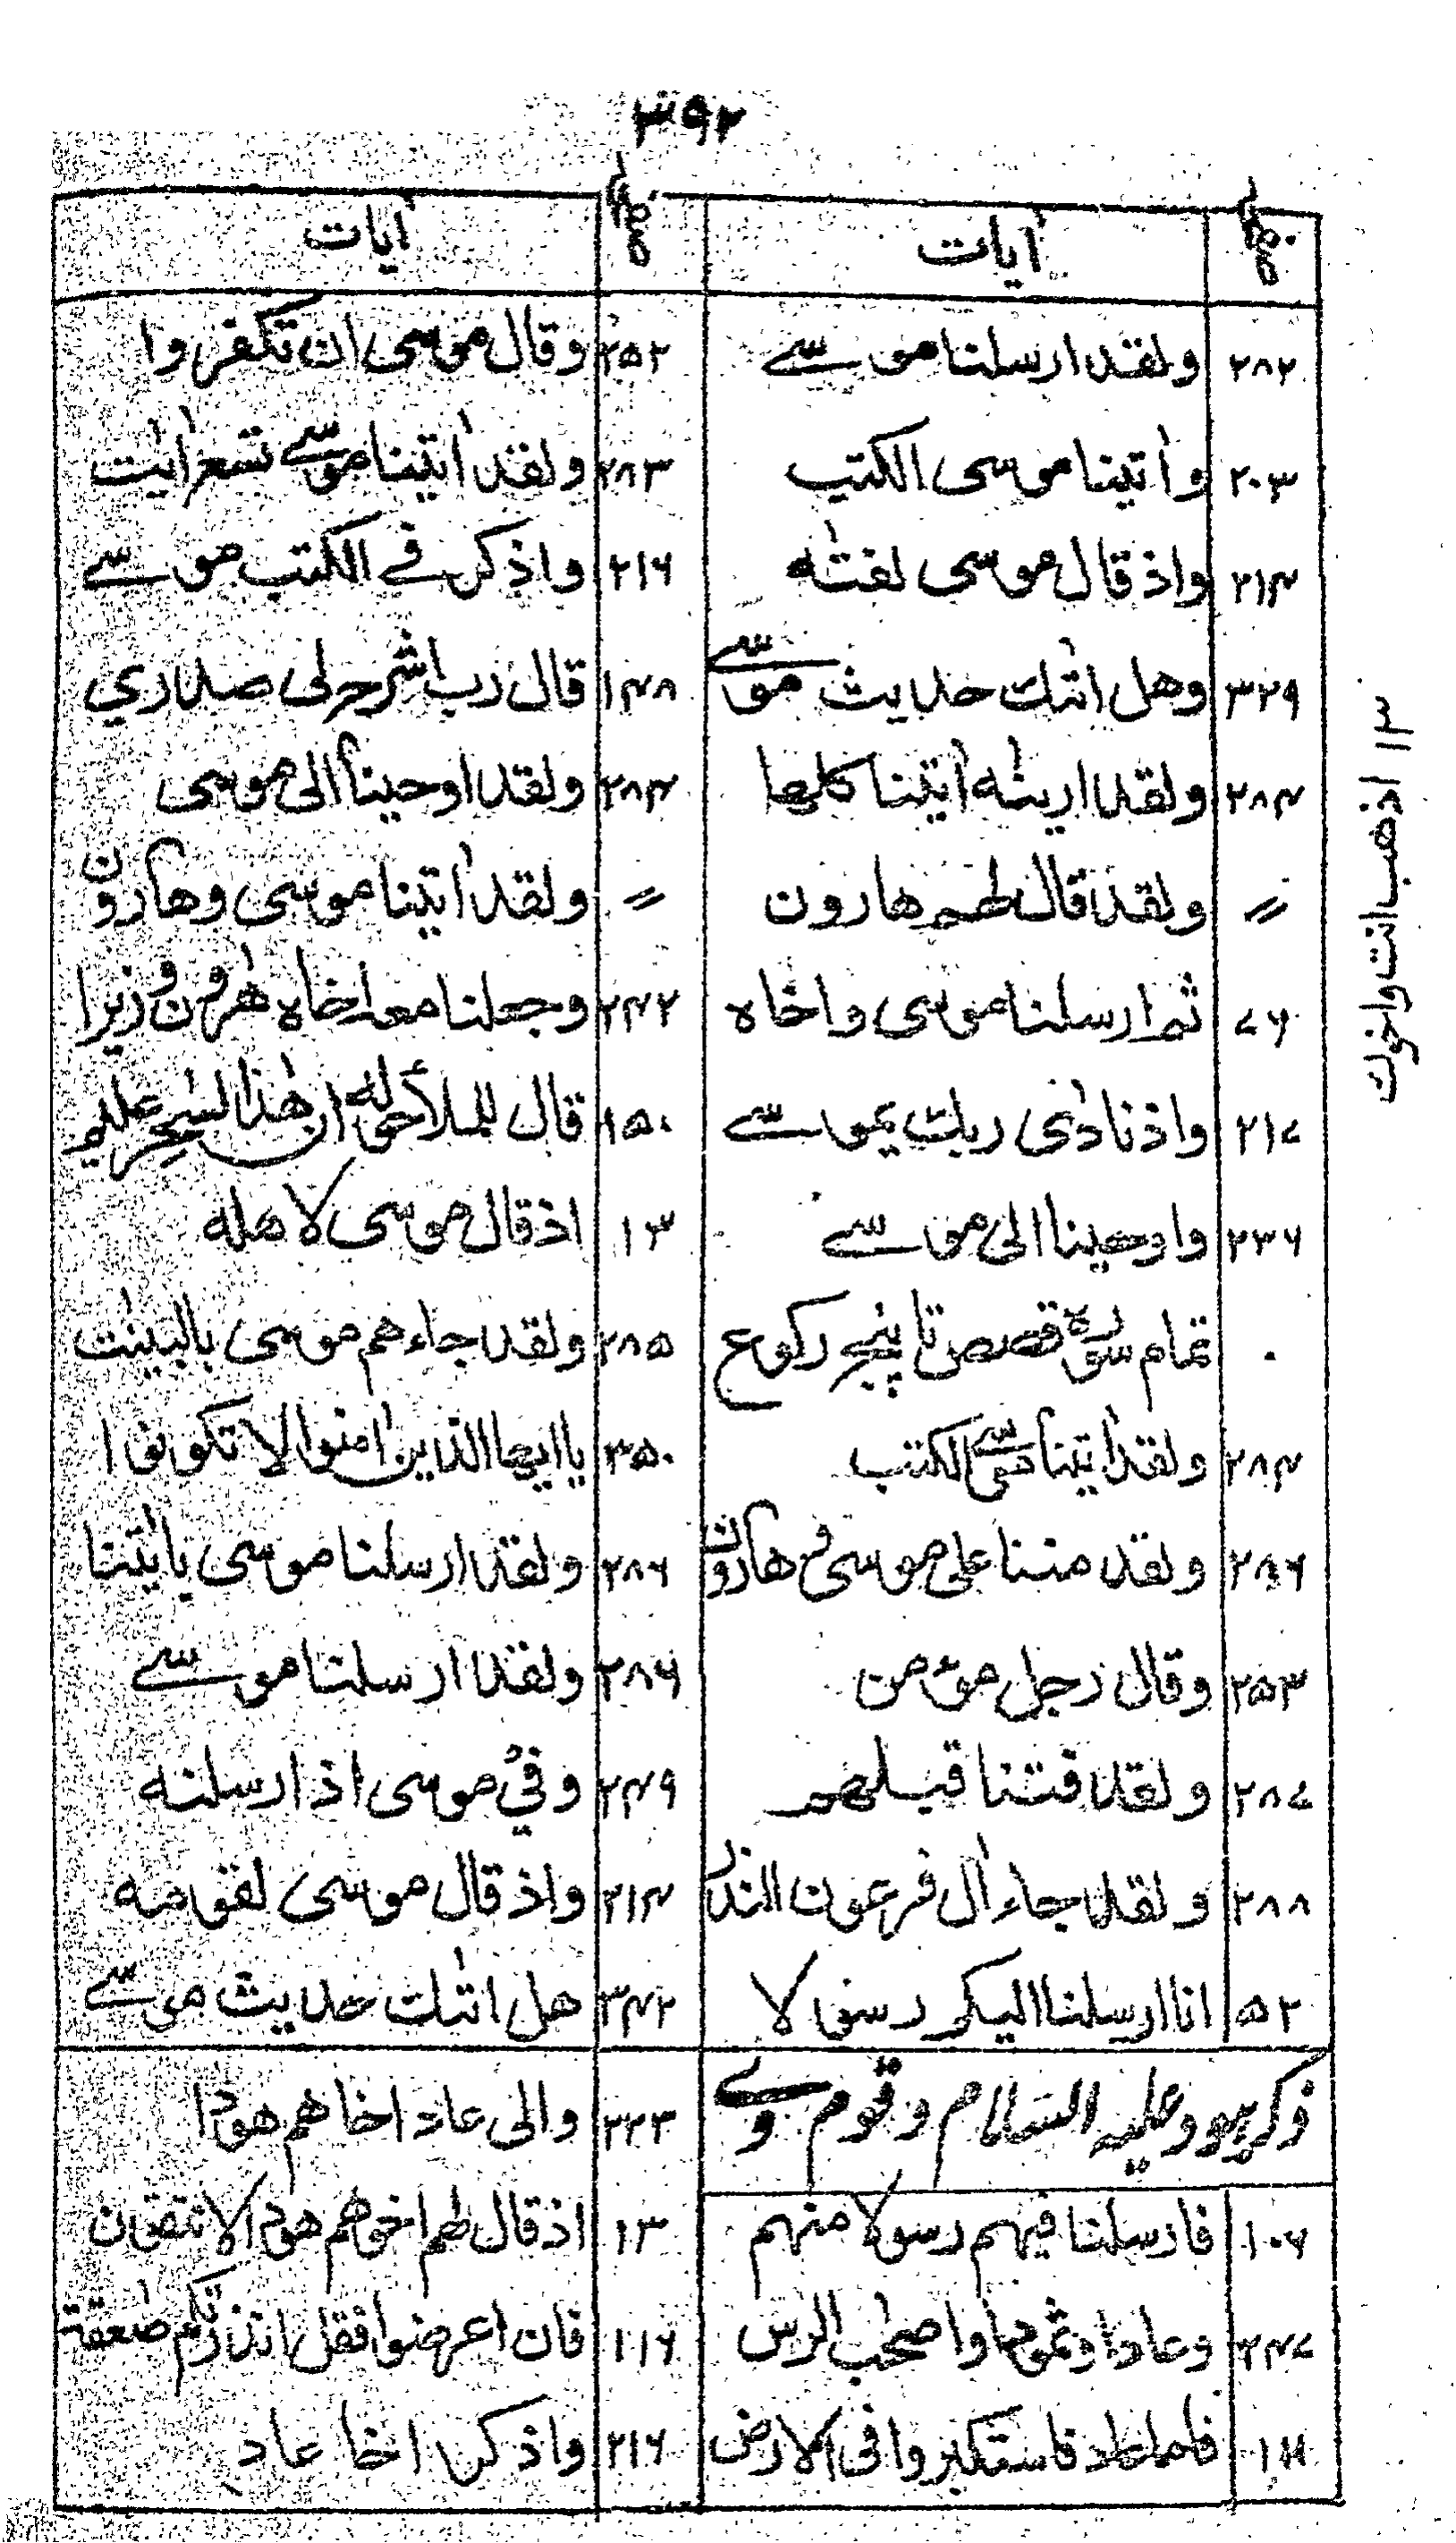 ۳۹۲
صفحہ آیات صفحہ آیات
۲۸۲ ولقد ارسلنا موسے ۲۵۲ وقال موسی ان تکفروا
۲۰۳ واٰتینا موسی الکتٰب ۲۸۳ ولقد اٰتینا موسے تسع اٰیٰت
۲۱۴ واذ قال موسی لفتٰہ ۲۱۶ واذکر فے الکتٰب موسے
۳۲۹ وھل اتٰک حدیث موسے ۱۴۸ قال رب اشرح لی صدری
۲۸۴ ولقد اریٰنہ اٰیٰتنا کلھا ۲۸۴ ولقد اوحینا الی موسی
〃 ولقد قال لھم ھارون 〃 ولقد اٰتینا موسی وھارون
۷۶ ثم ارسلنا موسی واخاہ ۲۴۲ وجعلنا معہ اخاہ ھٰرون وزیرا
۲۱۷ واذ نادٰی ربک موسے ۱۵۰ قال للملأ حولہ ان ھٰذا لسٰحر علیم
۲۳۶ واوحینا الی موسے ۱۳ اذ قال موسی لاھلہ
۰ تمام سورہ قصص تا پنج رکوع ۲۸۵ ولقد جاءھم موسی بالبینٰت
۲۸۴ ولقد اٰتینا موسے الکتٰب ۳۵۰ یا ایھا الذین اٰمنوا لا تکونوا
۲۸۶ ولقد مننا علی موسی و ھارون ۲۸۶ ولقد ارسلنا موسی باٰیٰتنا
۲۵۳ وقال رجل مؤمن ۲۸۶ ولقد ارسلنا موسے
۲۸۷ ولقد فتنا قبلھم ۲۴۹ وفی موسی اذ ارسلنہ
۲۸۸ ولقد جاء اٰل فرعون النذر ۲۱۴ واذ قال موسی لقومہ
۵۲ انا ارسلنا الیکم رسولا ۳۴۲ ھل اتٰک حدیث موسے
ذکر ہود علیہ السلام و قوم وے ۲۲۳ والی عاد اخاھم ھودا
۱۰۶ فارسلنا فیہم رسولا منہم ۱۳ اذ قال لھم اخوھم ھود الا تتقون
۲۴۷ وعادا وثمودا واصحٰب الرس ۱۱۶ فان اعرضوا فقل انذرتکم صٰعقۃ
فاما عاد فاستکبروا فی الارض ۲۱۶ واذکر اخا عاد
۱۳ اذھب انت واخوک